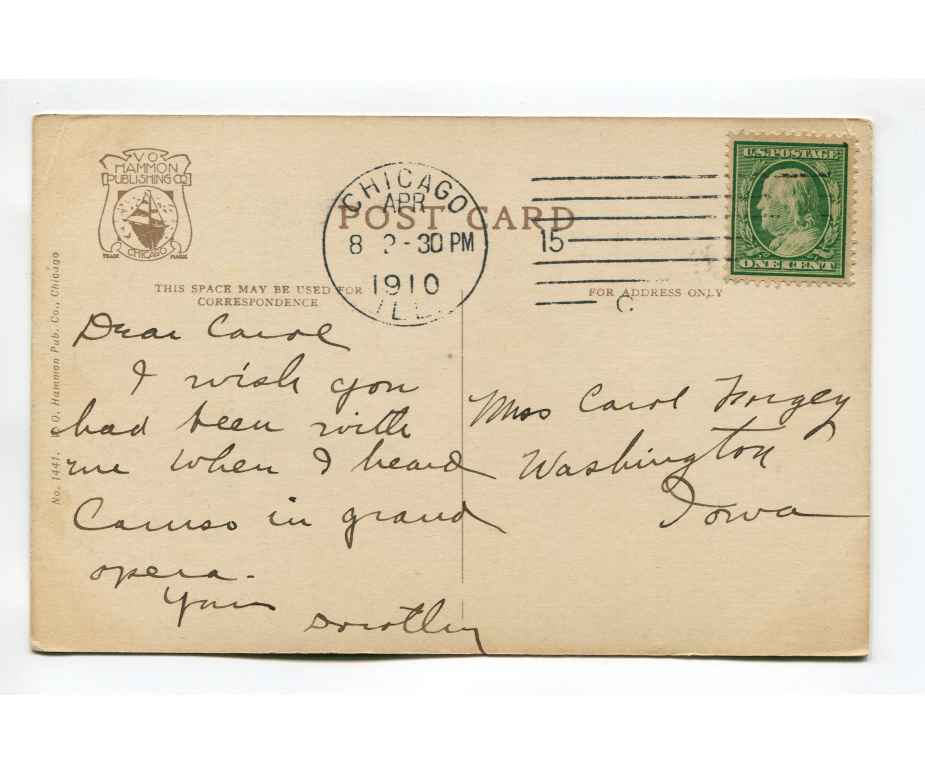 V.O.
HAMMON
PUBLISHING CO.
CHICAGO
TRADE MARK
CHICAGO
APR
8 2-30 PM
1910
ILL.
15
C.
POST CARD
U.S. POSTAGE
ONE CENT
THIS SPACE MAY BE USED FOR
CORRESPONDENCE
FOR ADDRESS ONLY
No. 1441. V. O. Hammon Pub. Co., Chicago
Dear Carol
I wish you
had been with
me when I heard
Caruso in grand
opera.
Your
Dorothy
Miss Carol Forgey
Washington
Iowa